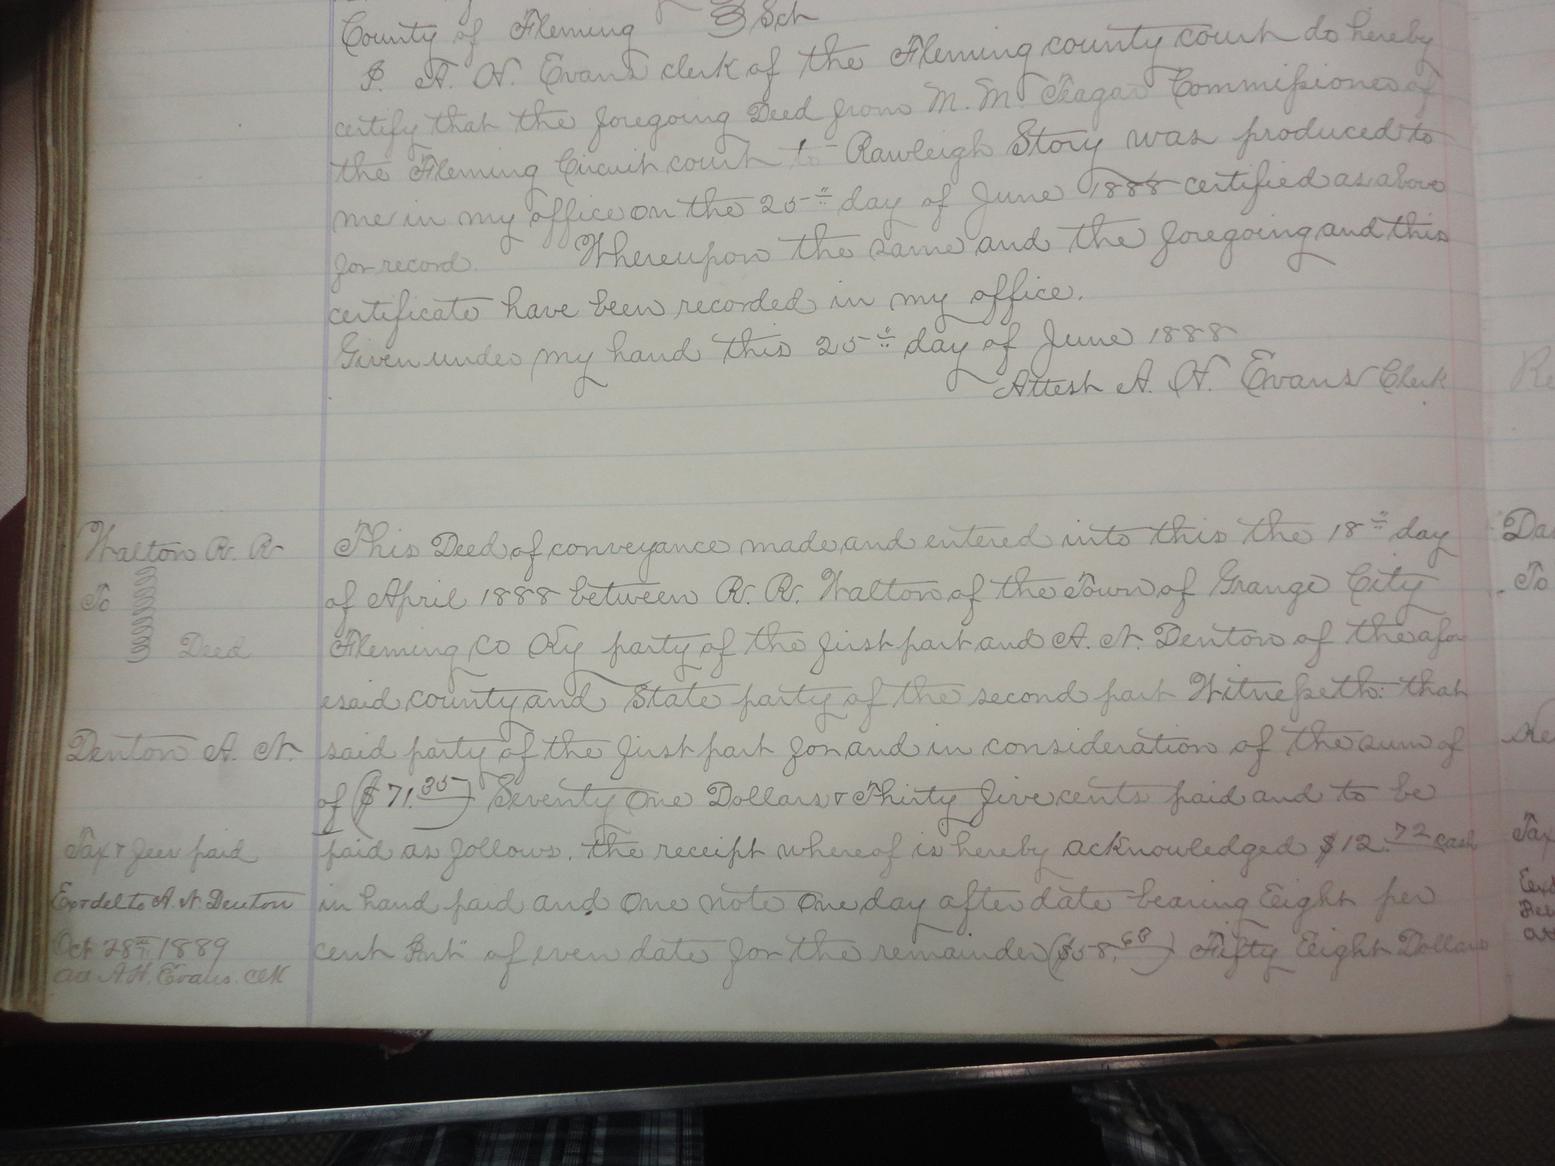 County of Fleming } Sct
I. A. H. Evans clerk of the Fleming county court do hereby
certify that the foregoing Deed from M. M. Teagar Commissioner of
the Fleming Circuit court to Rawleigh Story was produced to
me in my office on the 25th day of June 1888 certified as above
for record. Whereupon the same and the foregoing and this
certificate have been recorded in my office.
Given under my hand this 25th day of June 1888
Attest A. H. Evans Clerk
Walton R. R.
To
Deed
Denton A. N.
Tax & fees paid
Ex & del to A. N. Denton
Oct 28th 1889
att A. H. Evans. clk
This Deed of conveyance made and entered into this the 18th day
of April 1888 between R. R. Walton of the Town of Grange City
Fleming Co Ky party of the first part and A. N. Denton of the afor
esaid county and State party of the second part Witnesseth: that
said party of the first part for and in consideration of the sum of
of ($71.35) Seventy One Dollars & Thirty five cents paid and to be
paid as follows. the receipt whereof is hereby acknowledged $12.72 cash
in hand paid and One note One day after date bearing Eight per
cent Int of even date for the remainder ($58.68) Fifty Eight Dollars
Da
To
Tax